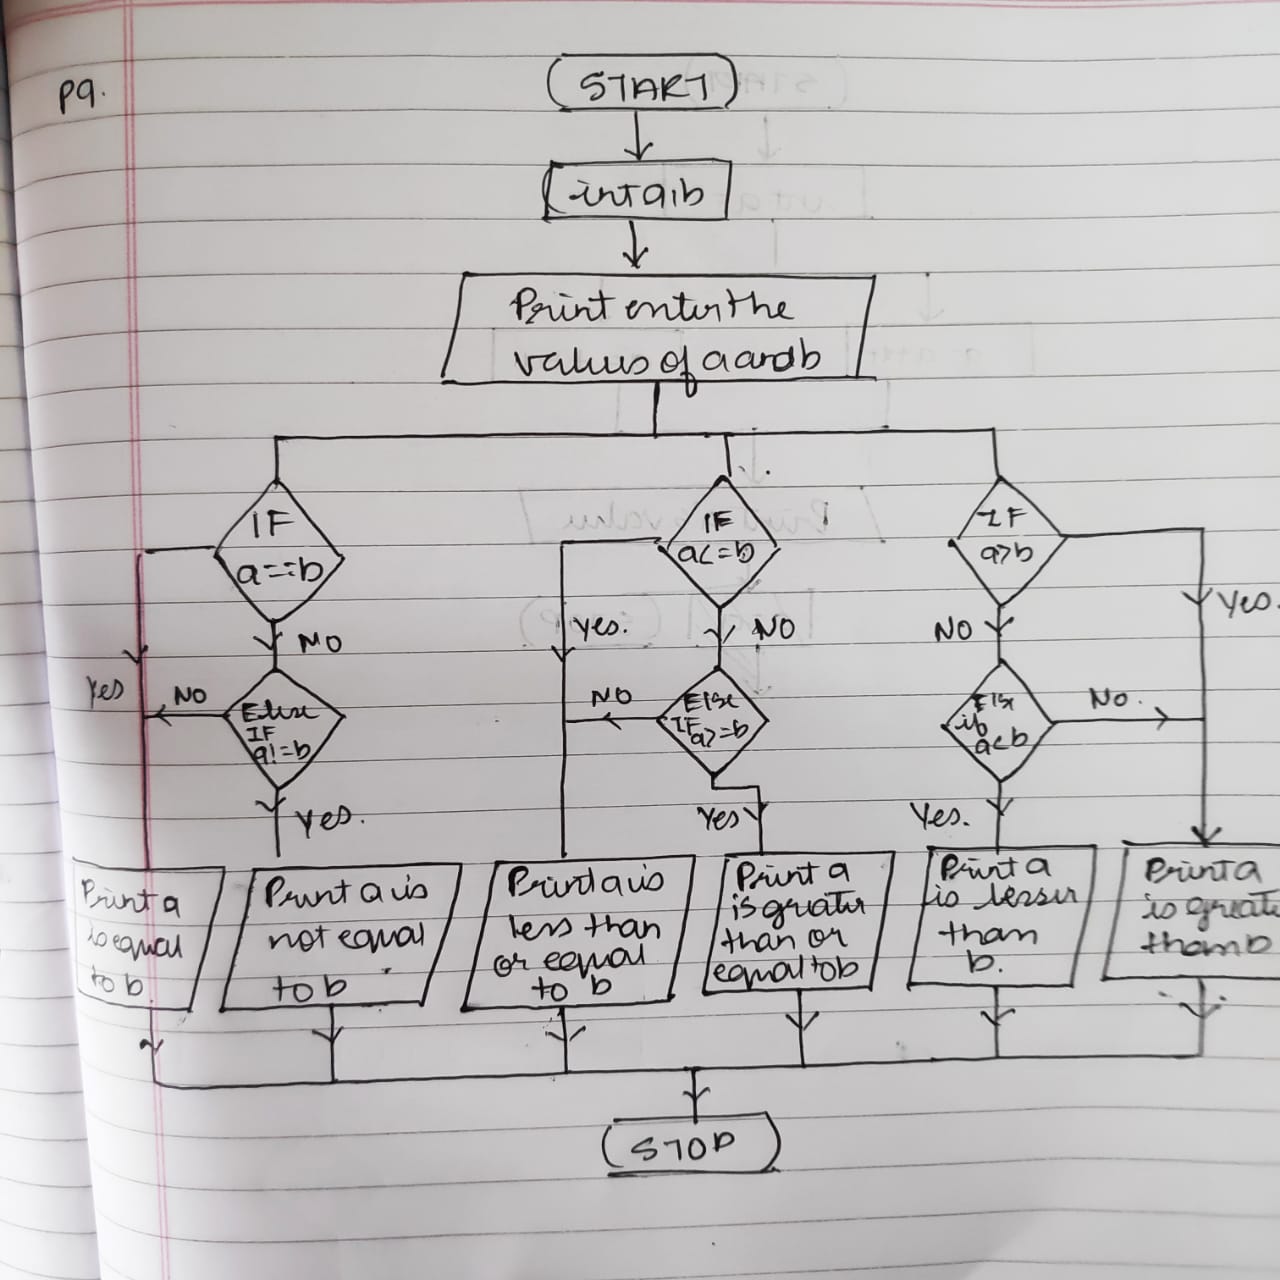 P9.
START
int a,b
Print enter the
values of a and b
IF
a==b
IF
a<=b
IF
a>b
Yes
NO
Yes.
NO
NO
Yes.
NO
Else
IF
a!=b
NO
Else
IF
a>=b
Else
if
a<b
No.
Yes.
Yes
Yes.
Print a
is equal
to b.
Print a is
not equal
to b
Print a is
less than
or equal
to b
Print a
is greater
than or
equal to b
Print a
is lesser
than
b.
Print a
is greate
than b
STOP